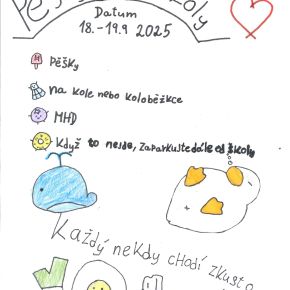 Datum
18.-19.9 2025
Pěšky
na kole nebo koloběžkce
MHD
Když to nejde, zaparkujte dále od školy
Každý někdy chodí zkus to